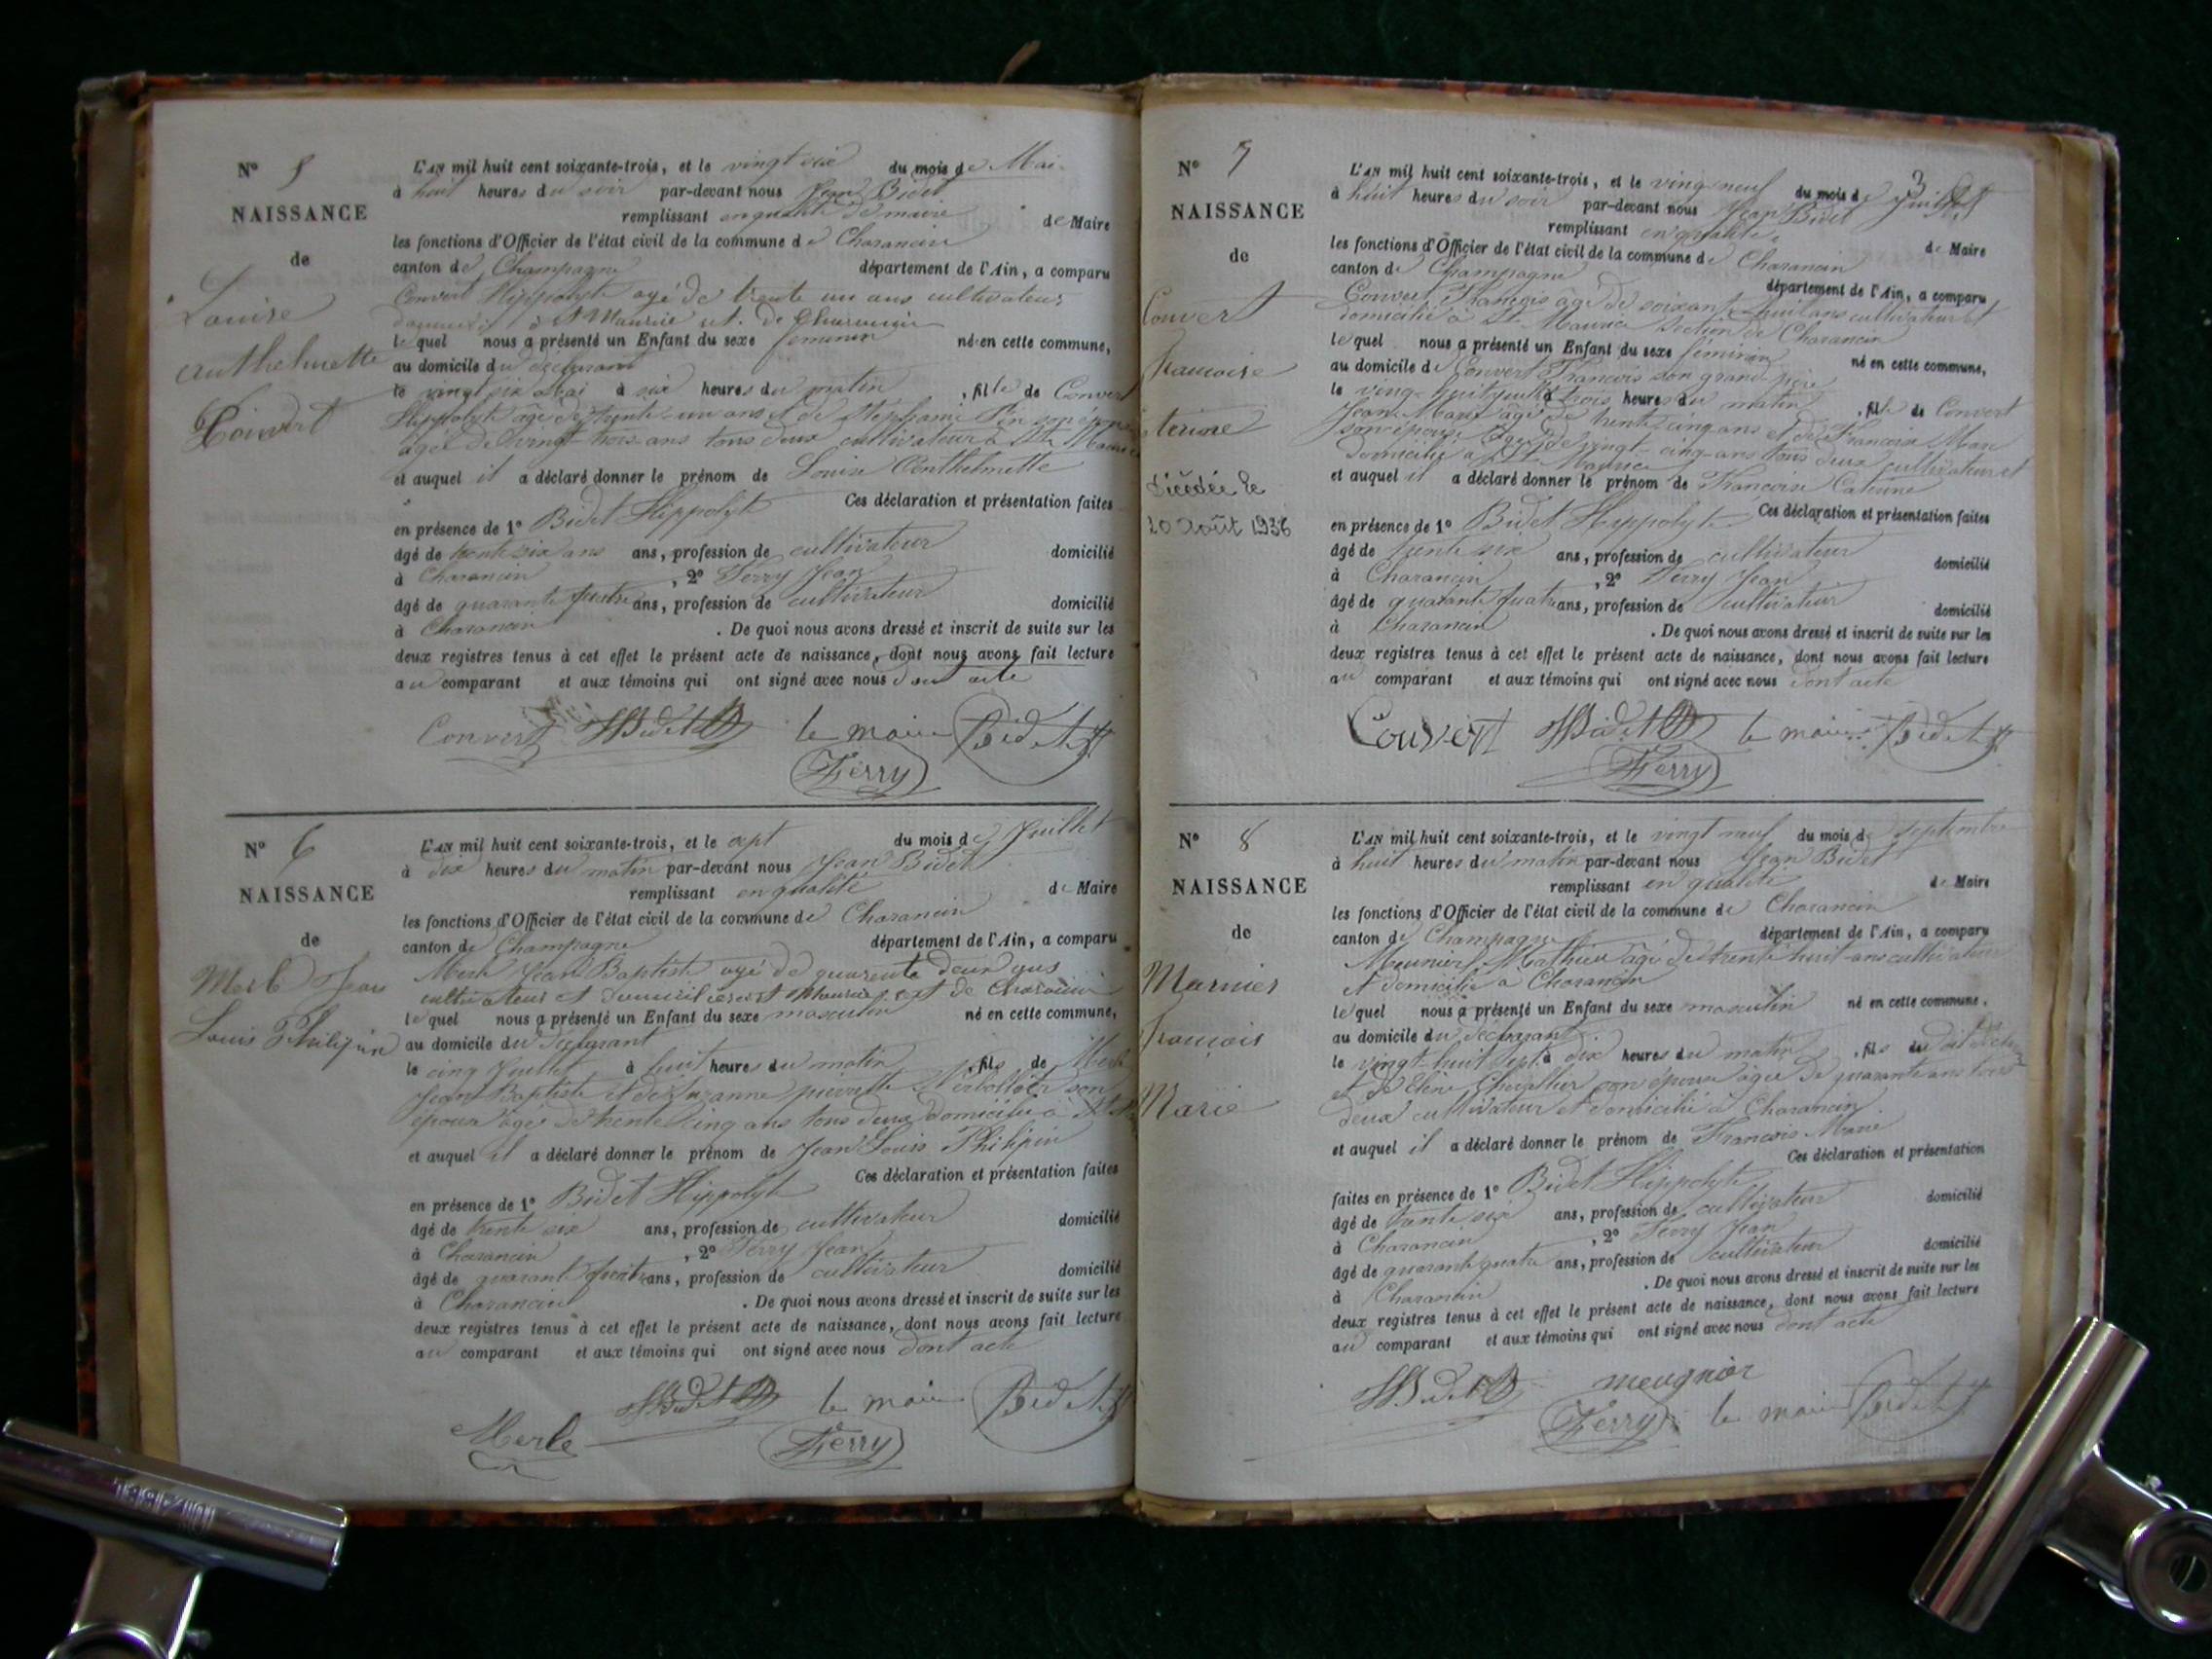 N° 5
NAISSANCE
de
Louise
Anthelmette
Convert
L'AN mil huit cent soixante-trois, et le vingt six du mois de Mai
à huit heures du soir par-devant nous Jean Bidet
remplissant en qualité de maire de Maire
les fonctions d'Officier de l'état civil de la commune de Charancin
canton de Champagne département de l'Ain, a comparu
Convert Hippolyte agé de trente un ans cultivateur
à St Maurice de Charancin
lequel nous a présenté un Enfant du sexe féminin né en cette commune,
au domicile du déclarant
le vingt six Mai à six heures du matin, fille de Convert
Hippolyte agé de trente un ans et de Stéphanie son épouse
agée de vingt trois ans tous deux cultivateur à St Maurice
et auquel il a déclaré donner le prénom de Louise Anthelmette
Ces déclaration et présentation faites
en présence de 1° Bidet Hippolyte
âgé de trente six ans ans, profession de cultivateur domicilié
à Charancin, 2° Ferry Jean
âgé de quarante quatre ans, profession de cultivateur domicilié
à Charancin. De quoi nous avons dressé et inscrit de suite sur les
deux registres tenus à cet effet le présent acte de naissance, dont nous avons fait lecture
au comparant et aux témoins qui ont signé avec nous dont acte
Convert HBidet le maire Bidet
Ferry
N° 6
NAISSANCE
de
Merle Jean
Louis Philipin
L'AN mil huit cent soixante-trois, et le sept du mois de Juillet
à dix heures du matin par-devant nous Jean Bidet
remplissant en qualité de Maire
les fonctions d'Officier de l'état civil de la commune de Charancin
canton de Champagne département de l'Ain, a comparu
Merle Jean Baptiste agé de quarente deux ans
cultivateur et domicilié à St Maurice de Charancin
lequel nous a présenté un Enfant du sexe masculin né en cette commune,
au domicile du déclarant
le cinq Juillet à huit heures du matin, fils de Merle
Jean Baptiste et de Suzanne pierrette son
épouse agée de trente cinq ans tous deux domicilié à St
et auquel il a déclaré donner le prénom de Jean Louis Philipin
Ces déclaration et présentation faites
en présence de 1° Bidet Hippolyte
âgé de trente six ans, profession de cultivateur domicilié
à Charancin, 2° Ferry Jean
âgé de quarante quatre ans, profession de cultivateur domicilié
à Charancin. De quoi nous avons dressé et inscrit de suite sur les
deux registres tenus à cet effet le présent acte de naissance, dont nous avons fait lecture
au comparant et aux témoins qui ont signé avec nous dont acte
HBidet le maire Bidet
Merle Ferry
3
N° 7
NAISSANCE
de
Convert
françoise
terine
décédée le
20 Août 1936
L'AN mil huit cent soixante-trois, et le ving neuf du mois de Juillet
à huit heures du soir par-devant nous Jean Bidet
remplissant en qualité de Maire
les fonctions d'Officier de l'état civil de la commune de Charancin
canton de Champagne département de l'Ain, a comparu
Convert François âgé de soixante huit ans cultivateur et
domicilié à St Maurice section de Charancin
lequel nous a présenté un Enfant du sexe féminin né en cette commune,
au domicile de Convert François son grand père
le ving-huit à trois heures du matin, fille de Convert
Jean Marie agé de trente cinq ans et de Françoise
son épouse agée de vingt-cinq ans tous deux cultivateur et
domicilié à St Maurice
et auquel il a déclaré donner le prénom de Françoise Caterine
Ces déclaration et présentation faites
en présence de 1° Bidet Hippolyte
âgé de trente six ans, profession de cultivateur domicilié
à Charancin, 2° Ferry Jean
âgé de quarante quatre ans, profession de cultivateur domicilié
à Charancin. De quoi nous avons dressé et inscrit de suite sur les
deux registres tenus à cet effet le présent acte de naissance, dont nous avons fait lecture
au comparant et aux témoins qui ont signé avec nous dont acte
Convert HBidet le maire Bidet
Ferry
N° 8
NAISSANCE
de
françois
Marie
L'AN mil huit cent soixante-trois, et le vingt neuf du mois de Septembre
à huit heures du matin par-devant nous Jean Bidet
remplissant en qualité de Maire
les fonctions d'Officier de l'état civil de la commune de Charancin
canton de Champagne département de l'Ain, a comparu
Meunier Mathieu agé de trente huit ans cultivateur
et domicilié a Charancin
lequel nous a présenté un Enfant du sexe masculin né en cette commune,
au domicile du déclarant
le vingt-huit Sept à dix heures du matin, fils du dit
et de Chevallier son épouse agée de quarante ans tous
deux cultivateur et domicilié à Charancin
et auquel il a déclaré donner le prénom de François Marie
Ces déclaration et présentation
faites en présence de 1° Bidet Hippolyte
âgé de trente six ans, profession de cultivateur domicilié
à Charancin, 2° Ferry Jean
âgé de quarante quatre ans, profession de cultivateur domicilié
à Charancin. De quoi nous avons dressé et inscrit de suite sur les
deux registres tenus à cet effet le présent acte de naissance, dont nous avons fait lecture
au comparant et aux témoins qui ont signé avec nous dont acte
HBidet meugnier
Ferry le maire Bidet